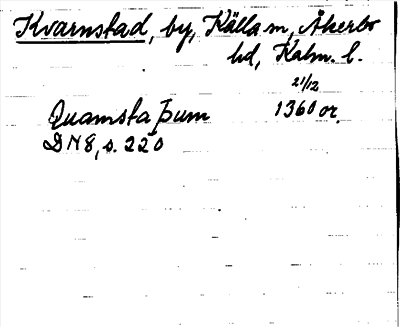 Kvarnstad, by, Källa sn, Åkerbo
hd, Kalm. l.
21/12
Quamsta þum 1360 or.
DN 8, s. 220